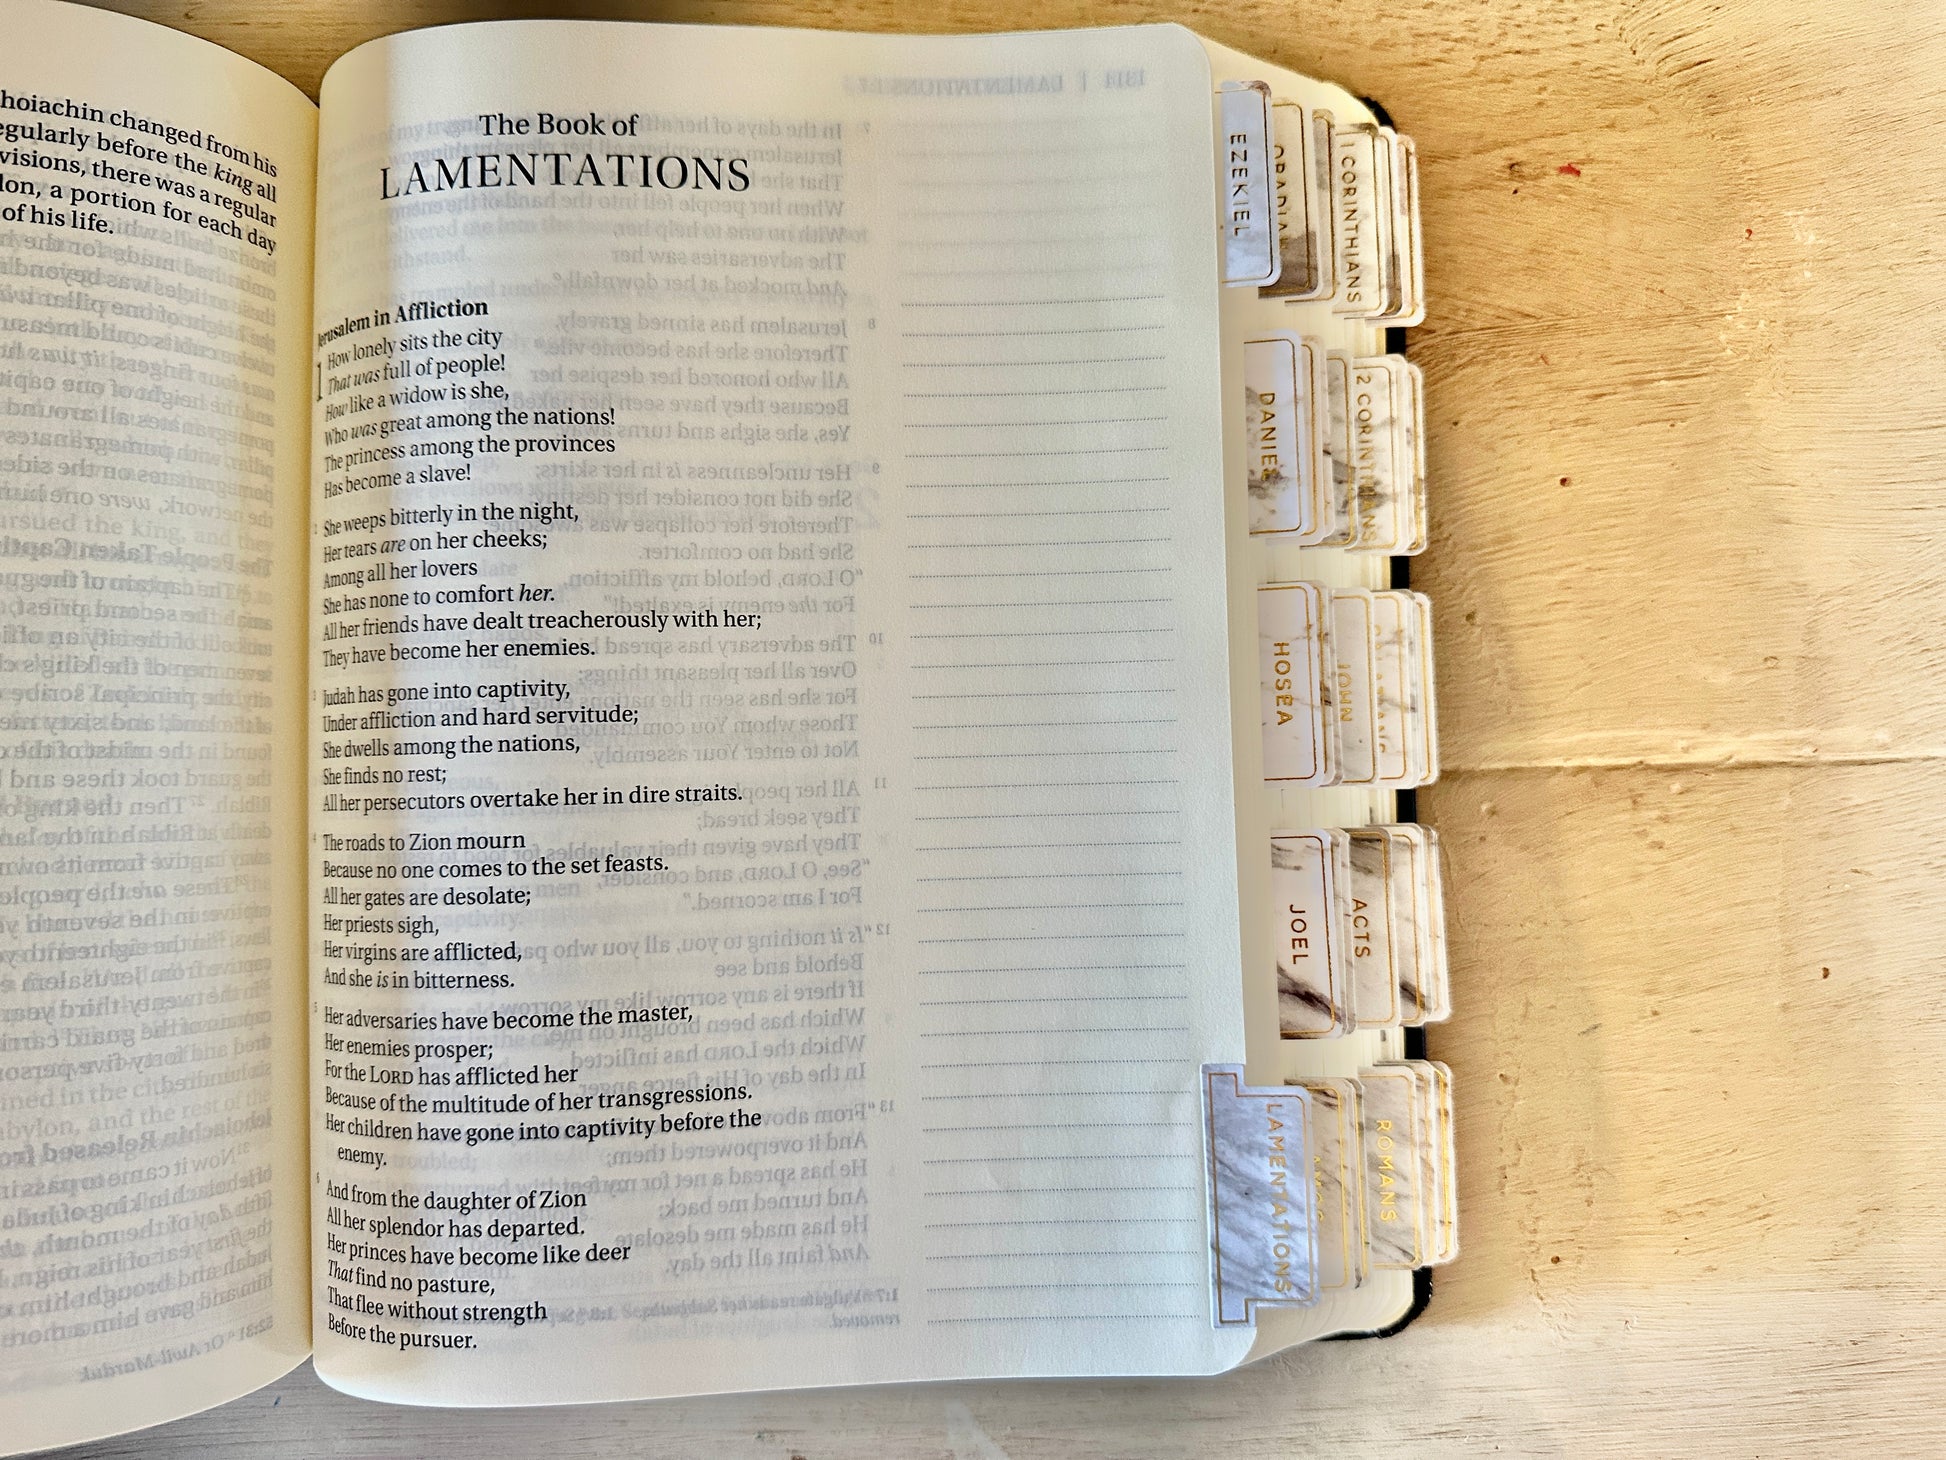 hoiachin changed from his
egularly before the king all
visions, there was a regular
lon, a portion for each day
of his life.
The Book of
LAMENTATIONS
Jerusalem in Affliction
1 How lonely sits the city
That was full of people!
How like a widow is she,
Who was great among the nations!
The princess among the provinces
Has become a slave!
2 She weeps bitterly in the night,
Her tears are on her cheeks;
Among all her lovers
She has none to comfort her.
All her friends have dealt treacherously with her;
They have become her enemies.
3 Judah has gone into captivity,
Under affliction and hard servitude;
She dwells among the nations,
She finds no rest;
All her persecutors overtake her in dire straits.
4 The roads to Zion mourn
Because no one comes to the set feasts.
All her gates are desolate;
Her priests sigh,
Her virgins are afflicted,
And she is in bitterness.
5 Her adversaries have become the master,
Her enemies prosper;
For the LORD has afflicted her
Because of the multitude of her transgressions.
Her children have gone into captivity before the
enemy.
6 And from the daughter of Zion
All her splendor has departed.
Her princes have become like deer
That find no pasture,
That flee without strength
Before the pursuer.
EZEKIEL
OBADIAH
1 CORINTHIANS
DANIEL
2 CORINTHIANS
HOSEA
JOHN
GALATIANS
JOEL
ACTS
LAMENTATIONS
AMOS
ROMANS